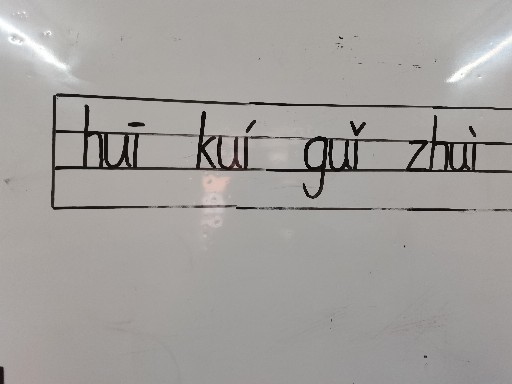 huī kuí guǐ zhuì